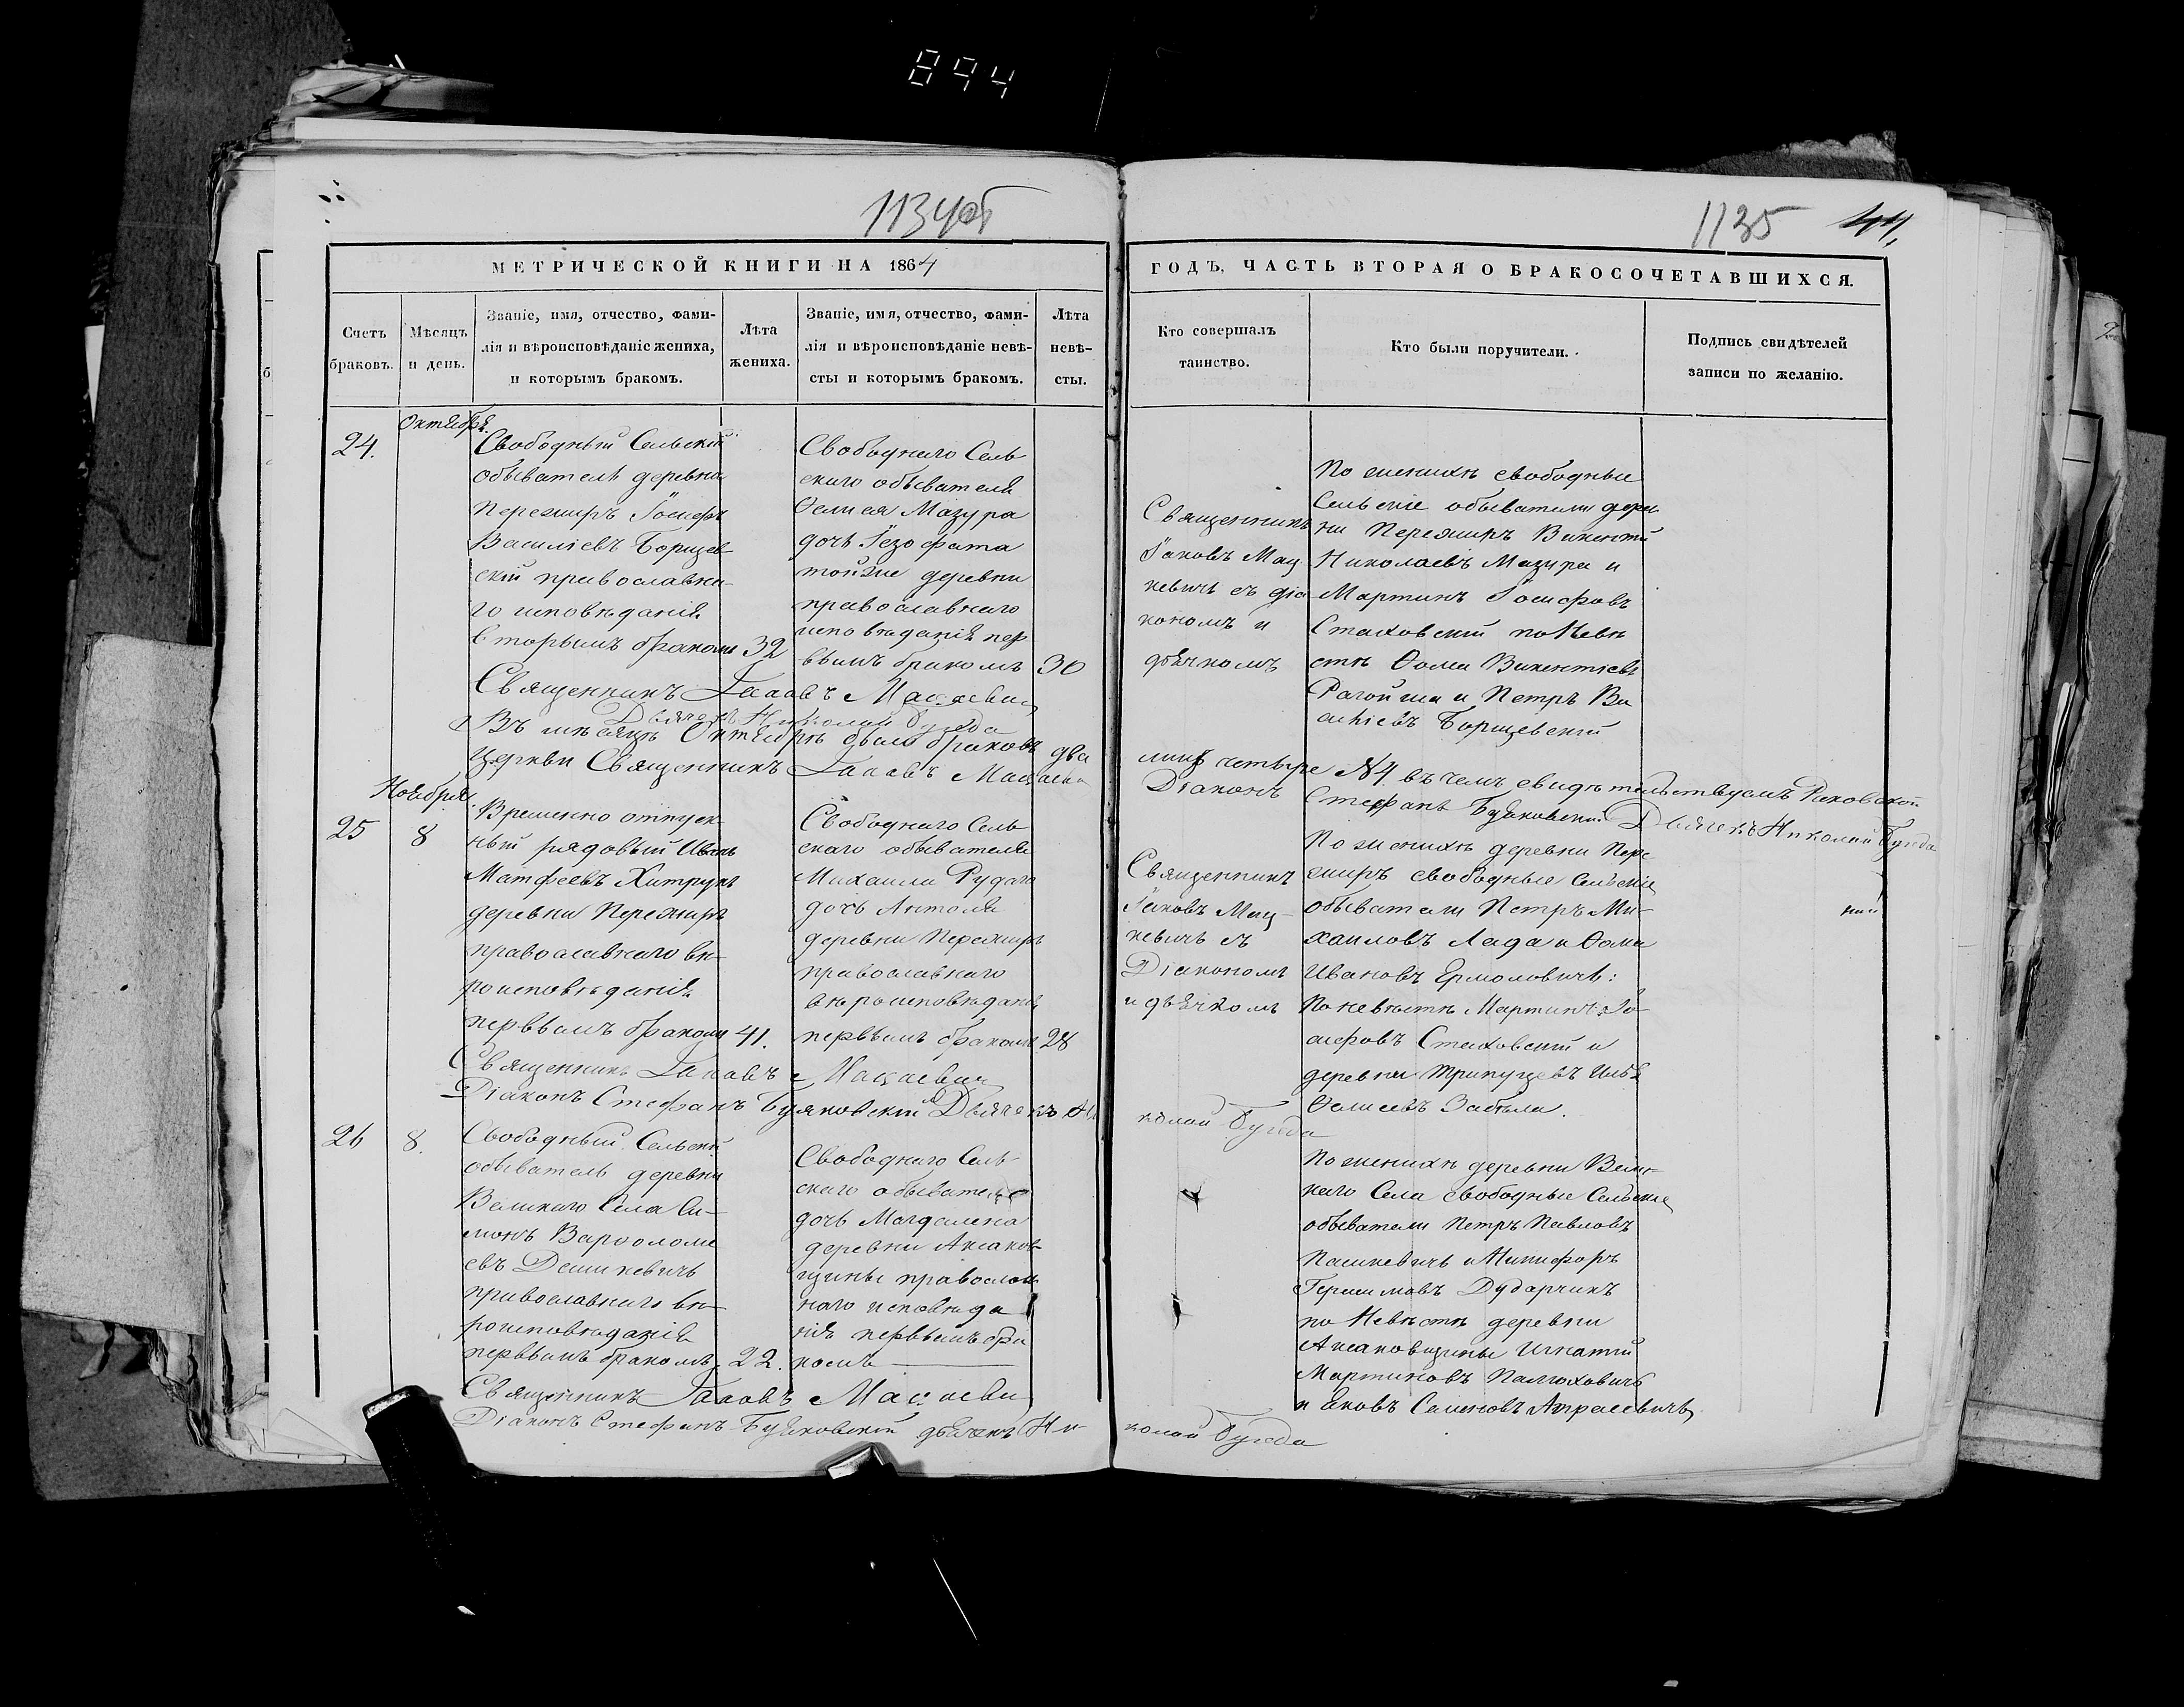 894
1134об
1135 44.
МЕТРИЧЕСКОЙ КНИГИ НА 1864
ГОДЪ, ЧАСТЬ ВТОРАЯ О БРАКОСОЧЕТАВШИХСЯ.
Счетъ
браковъ.
Мѣсяцъ
и день.
Званіе, имя, отчество, фами-
лія и вѣроисповѣданіе жениха,
и которымъ бракомъ.
Лѣта
жениха.
Званіе, имя, отчество, фами-
лія и вѣроисповѣданіе невѣ-
сты и которымъ бракомъ.
Лѣта
невѣ-
сты.
Кто совершалъ
таинство.
Кто были поручители.
Подпись свидѣтелей
записи по желанію.
Октября.
24.
Свободный Сельскій
обыватель деревни
Пережиръ Іосифъ
Василіевъ Борщев-
скій православна-
го исповѣданія
вторымъ бракомъ
32
Свободнаго Сель
скаго обывателя
Ѳомы Мазура
дочь Іезофата
тойже деревни
православнаго
исповѣданія пер
вымъ бракомъ
30
Священникъ
Іаковъ Мац
кевичъ съ діа
кономъ и
дьячкомъ
По женихѣ свободные
Сельскіе обыватели дерев
ни Пережиръ Викентій
Николаевъ Мазура и
Мартинъ Іосифовъ
Стаховскій по Невѣ
стѣ Ѳома Викентіевъ
Рагойша и Петръ Ва
силіевъ Борщевскій
Священникъ Іаковъ Мацкевич
Дьячекъ Николай Бузда
Въ мѣсяцѣ Октябрѣ было браковъ два
мнѣ четыре №4. въ чемъ свидѣтельствуемъ Раковской
Церкви Священникъ Іаковъ Мацкеви
Діаконъ Стефанъ Буяковскій Дьячекъ Николай Бузда
Ноября.
25
8
Временно отпуск-
ный рядовый Иванъ
Матфеевъ Хитрукъ
деревни Пережиръ
православнаго вѣ-
роисповѣданія
первымъ бракомъ
41.
Свободнаго Сель
скаго обывателя
Михаила Рудаго
дочь Антоля
деревни Пережиръ
православнаго
вѣроисповѣданія
первымъ бракомъ
28
Священникъ
Іаковъ Мац-
кевичъ съ
Діакономъ
и дьячкомъ
По женихѣ деревни Пере
жиръ свободные Сельскіе
обыватели Петръ Ми-
хаиловъ Лада и Ѳома
Ивановъ Ермоловичъ:
По невѣстѣ Мартинъ Іо-
сифовъ Стаховскій и
деревни Трипуцевъ Илья
Ѳомаевъ Забѣла.
Священникъ Іаковъ Мацкевич
Діаконъ Стефанъ Буяковскій Дьячекъ Ни
колай Бузда
26
8.
Свободный Сельскій
обыватель деревни
Великаго Села Си-
монъ Варѳоломе
евъ Дешкевичъ
православнаго вѣ-
роисповѣданія
первымъ бракомъ
22.
Свободнаго Сель-
скаго обывателя
дочь Магдалена
деревни Аксаков-
щины православ
наго исповѣда
нія первымъ бра
комъ
По женихѣ деревни Вели-
каго Села свободные Сельскіе
обыватели Петръ Павловъ
Пашкевичъ и Никифоръ
Герасимовъ Дударчикъ
по Невѣстѣ деревни
Аксаковщины Игнатій
Мартиновъ Палюховичъ
и Яковъ Семеновъ Апрасевичъ
Священникъ Іаковъ Мацкеви
Діаконъ Стефанъ Буяковскій дьячекъ Ни-
колай Бузда